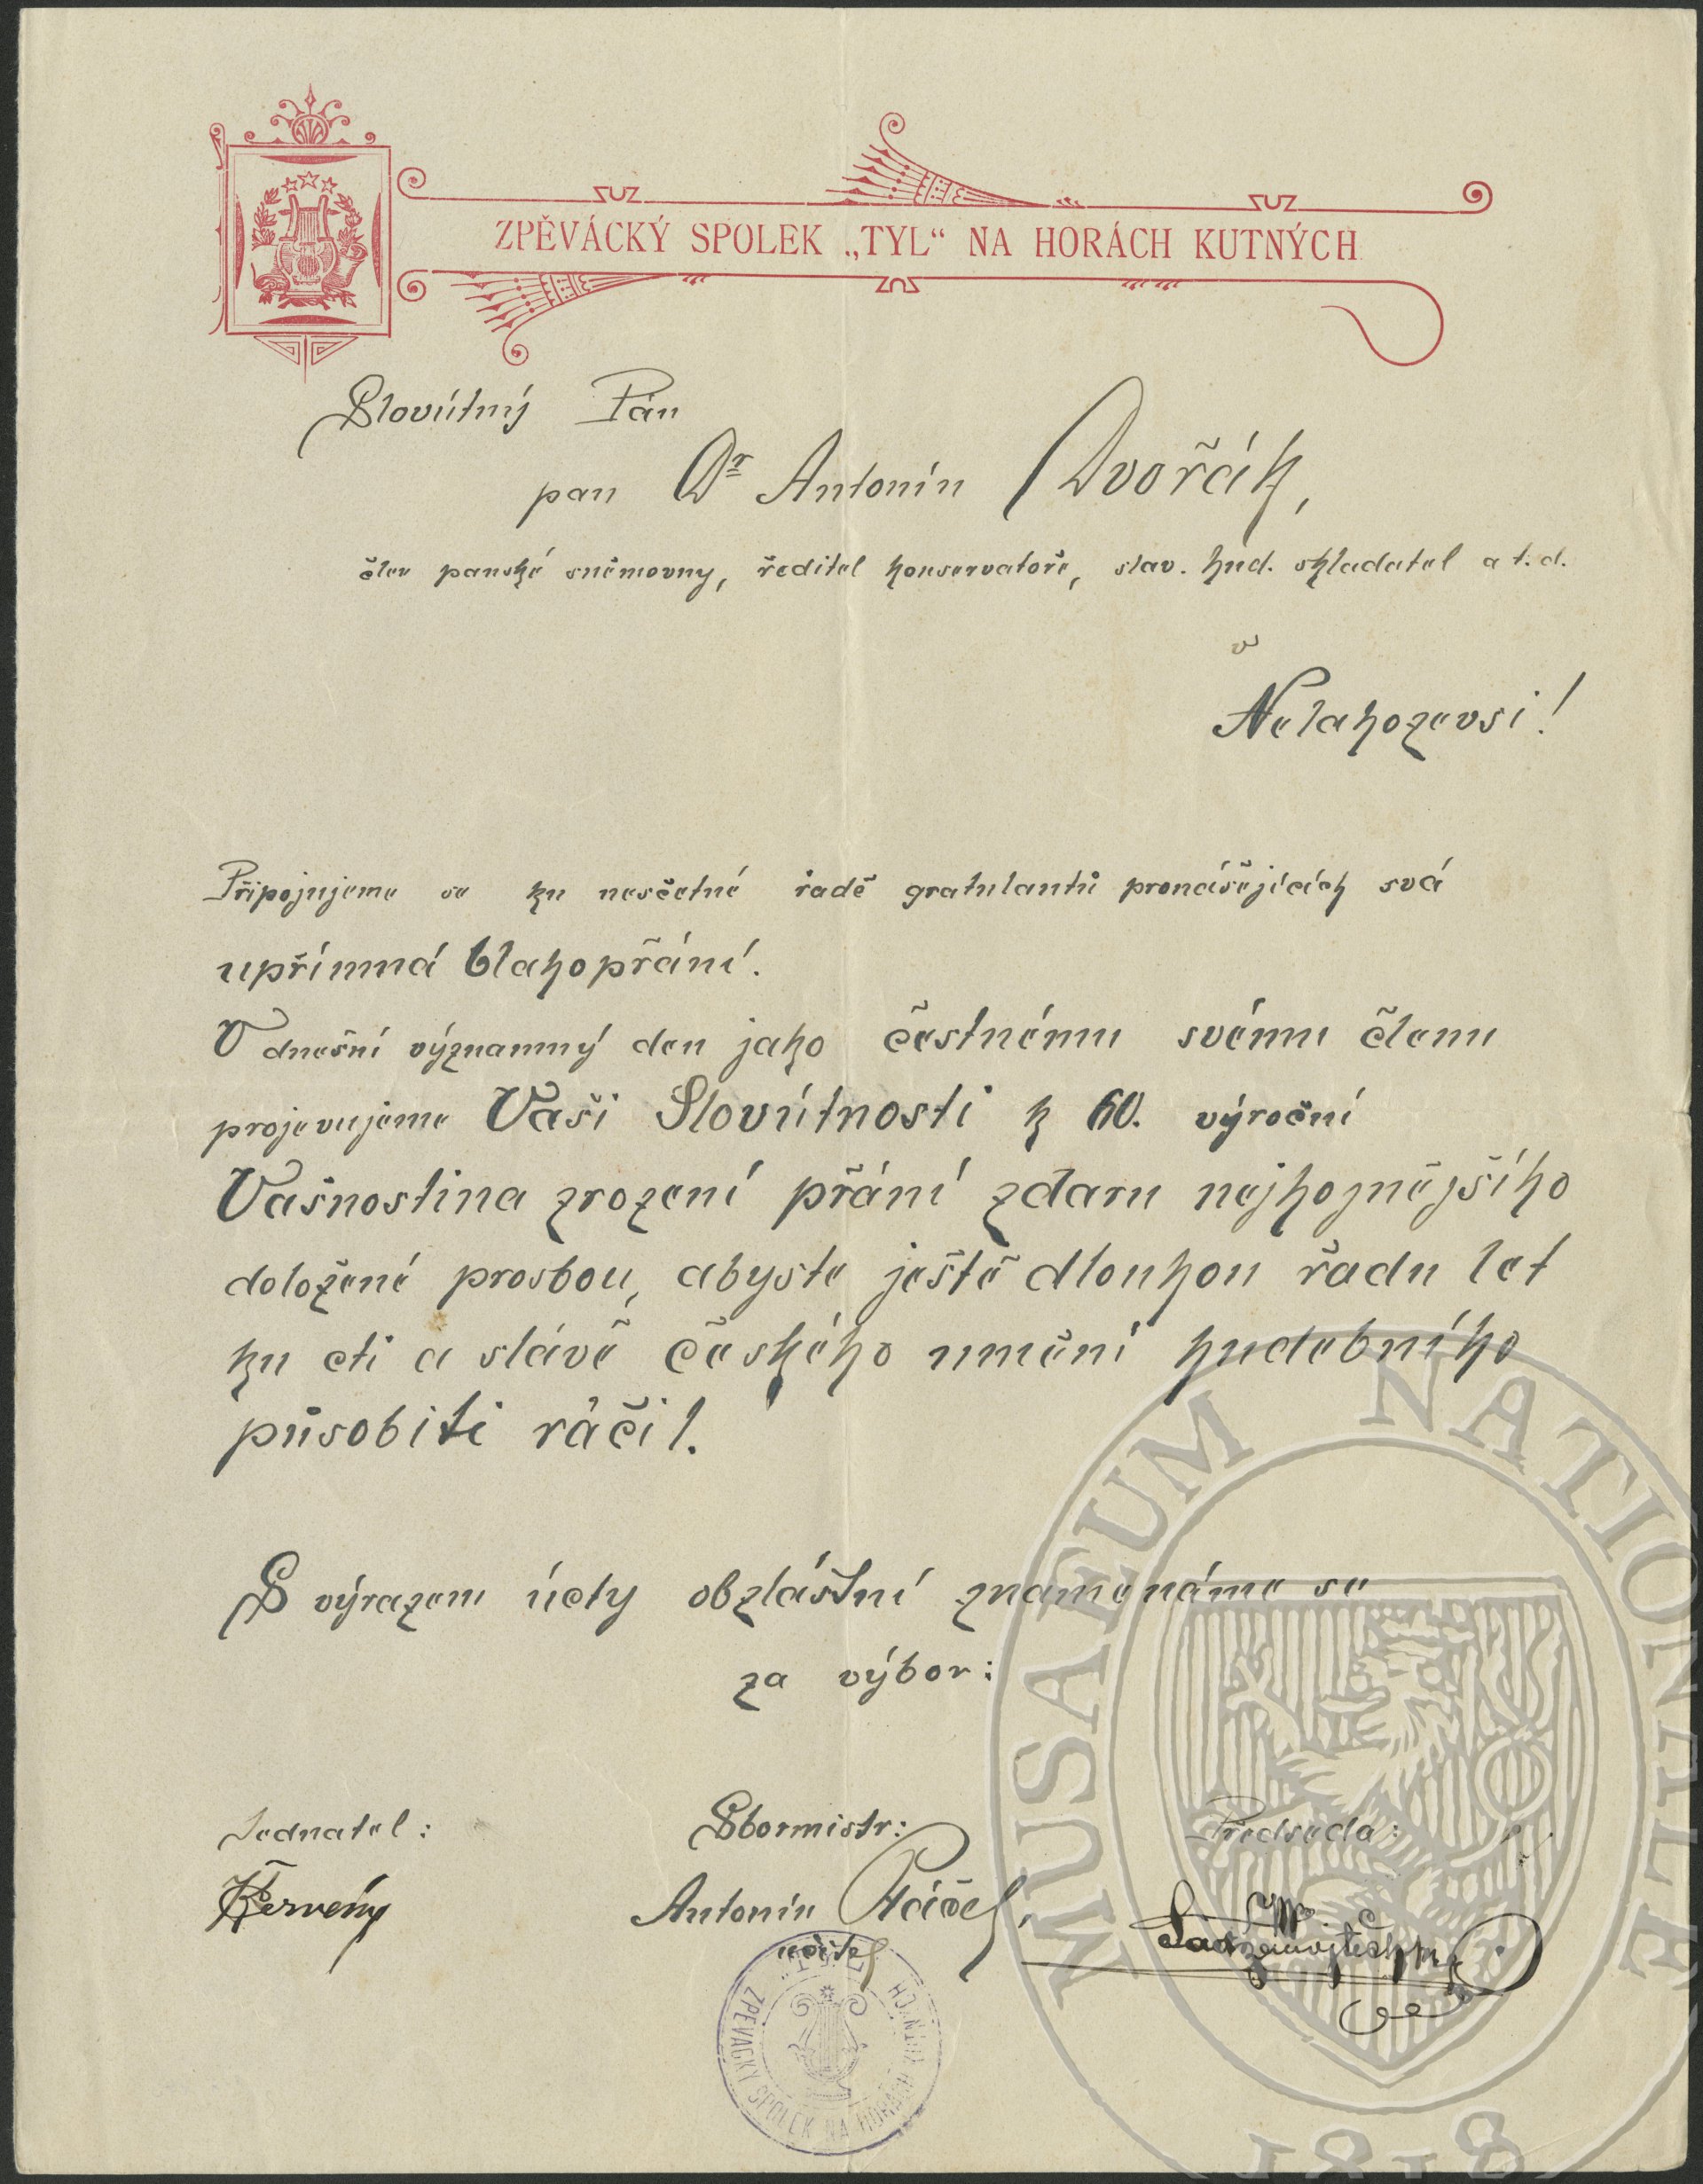 ZPĚVÁCKÝ SPOLEK „TYL“ NA HORÁCH KUTNÝCH
Slovútný Pán
pan Dr Antonín Dvořák,
člen panské sněmovny, ředitel konservatoře, slav. hud. skladatel a t. d.
v
Nelahozevsi!
Připojujeme se ku nesčetné řadě gratulantů pronášejících svá
upřímná blahopřání.
V dnešní významný den jako čestnému svému členu
projevujeme Vaší Slovútnosti k 60. výroční
Vašnostina zrození přání zdaru nejhojnějšího
doložené prosbou, abyste ještě dlouhou řadu let
ku cti a slávě českého umění hudebního
působiti ráčil.
S výrazem úcty obzláštní znamenáme se
za výbor:
Jednatel: Sbormistr: Předseda:
Červený Antonín
učitel
ZPĚVÁCKÝ SPOLEK NA HORÁCH KUTNÝCH
MUSAEUM NATIONALE
1818